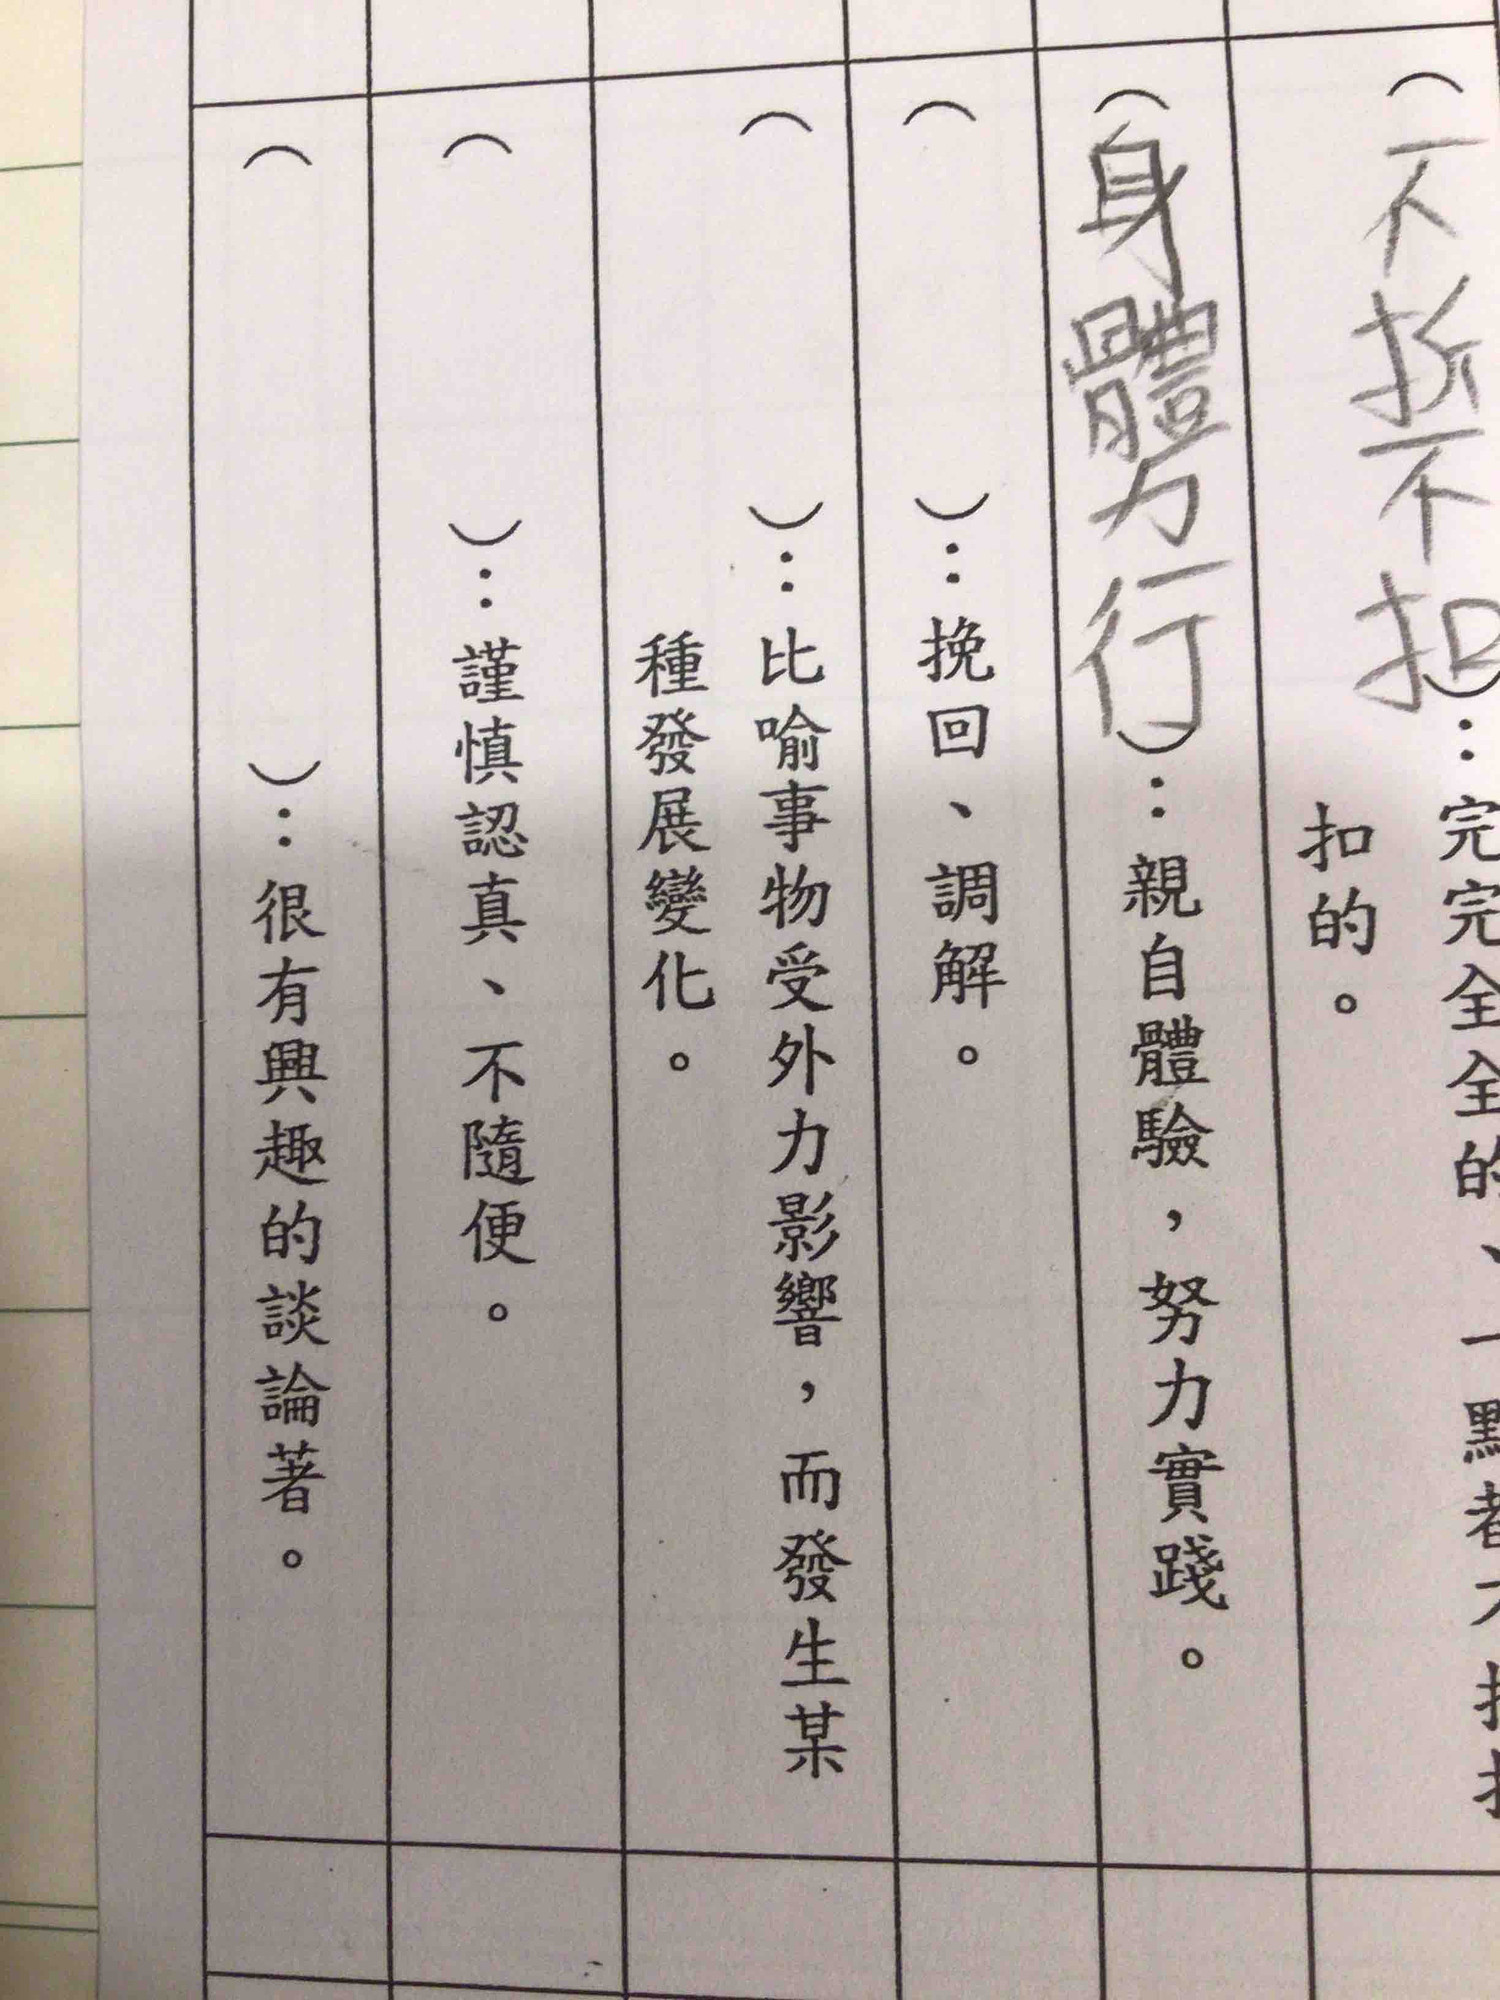 （不折不扣）：完完全全的、一點都不折
扣的。
（身體力行）：親自體驗，努力實踐。
（　　）：挽回、調解。
（　　）：比喻事物受外力影響，而發生某
種發展變化。
（　　）：謹慎認真、不隨便。
（　　）：很有興趣的談論著。